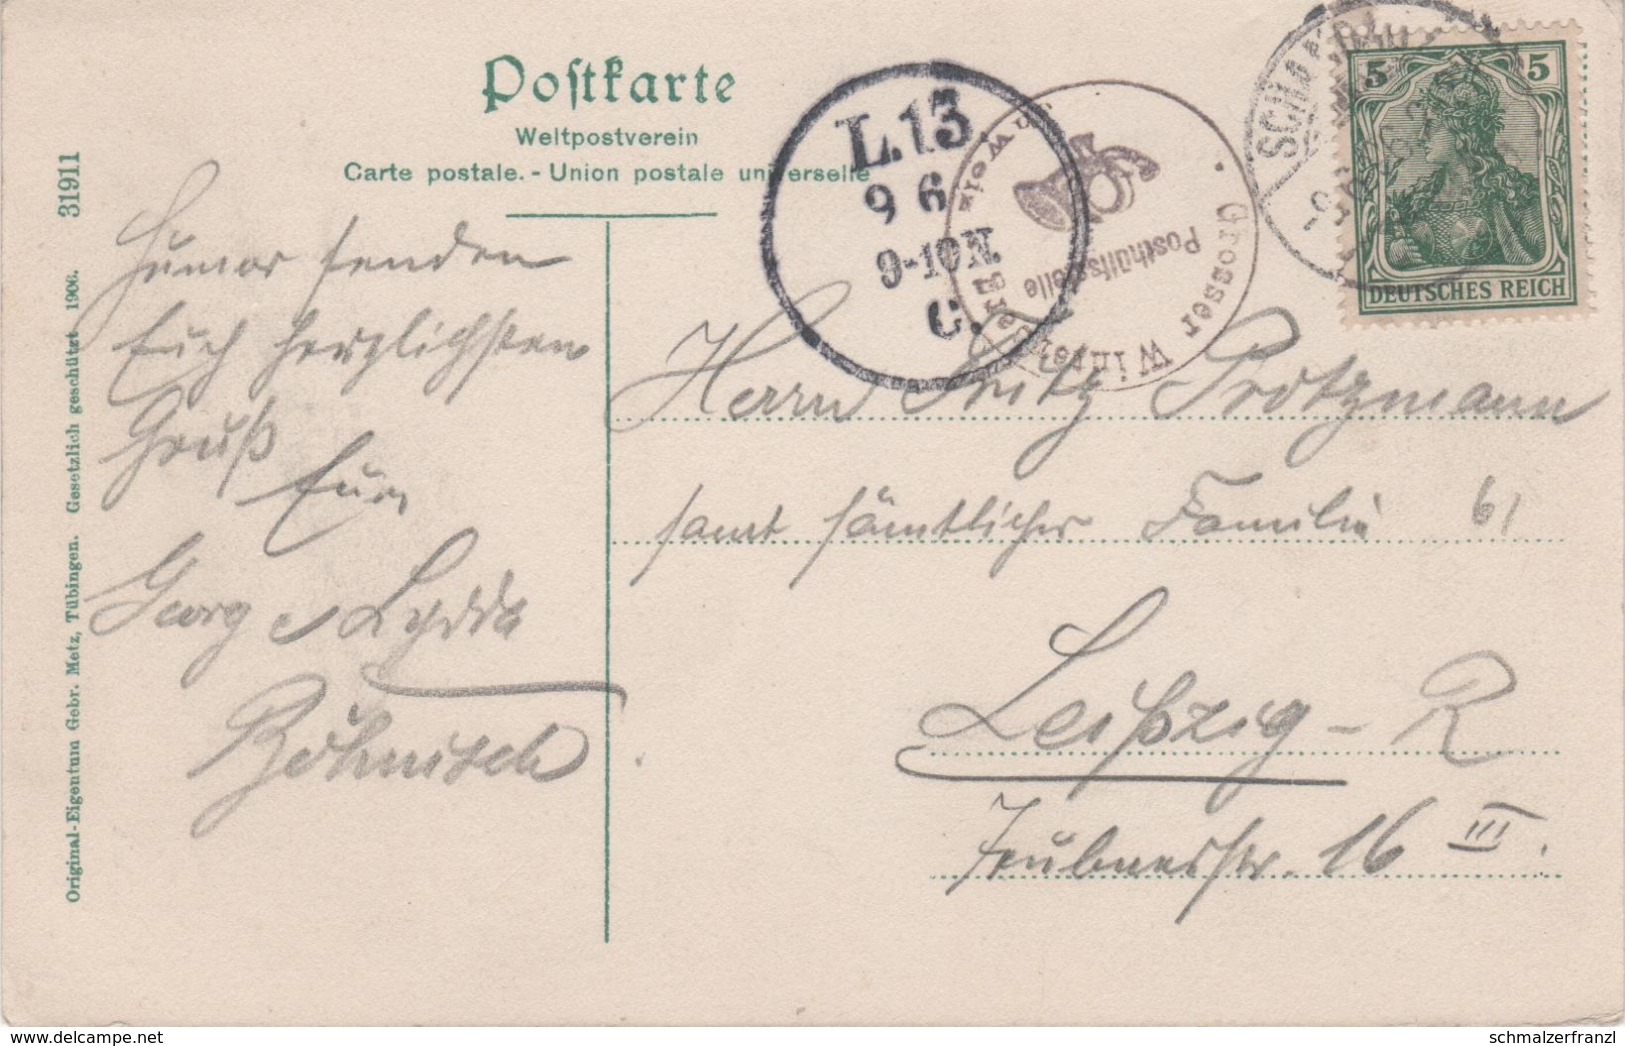 Postkarte
Weltpostverein
Carte postale. - Union postale universelle
31911
Original-Eigentum Gebr. Metz, Tübingen. Gesetzlich geschützt 1906.
L. 13
9 6
9-10 N.
C.
Grosser Winterberg
Posthülfsstelle
SCHAN
5 5
DEUTSCHES REICH
Humor senden
Euch herzlichsten
Gruß
Eure
Georg u Lydda
Böhnisch.
Herrn Fritz Protzmann
samt sämtlicher Familie 61
Leipzig - R
16 III.
www.delcampe.net
schmalzerfranzl